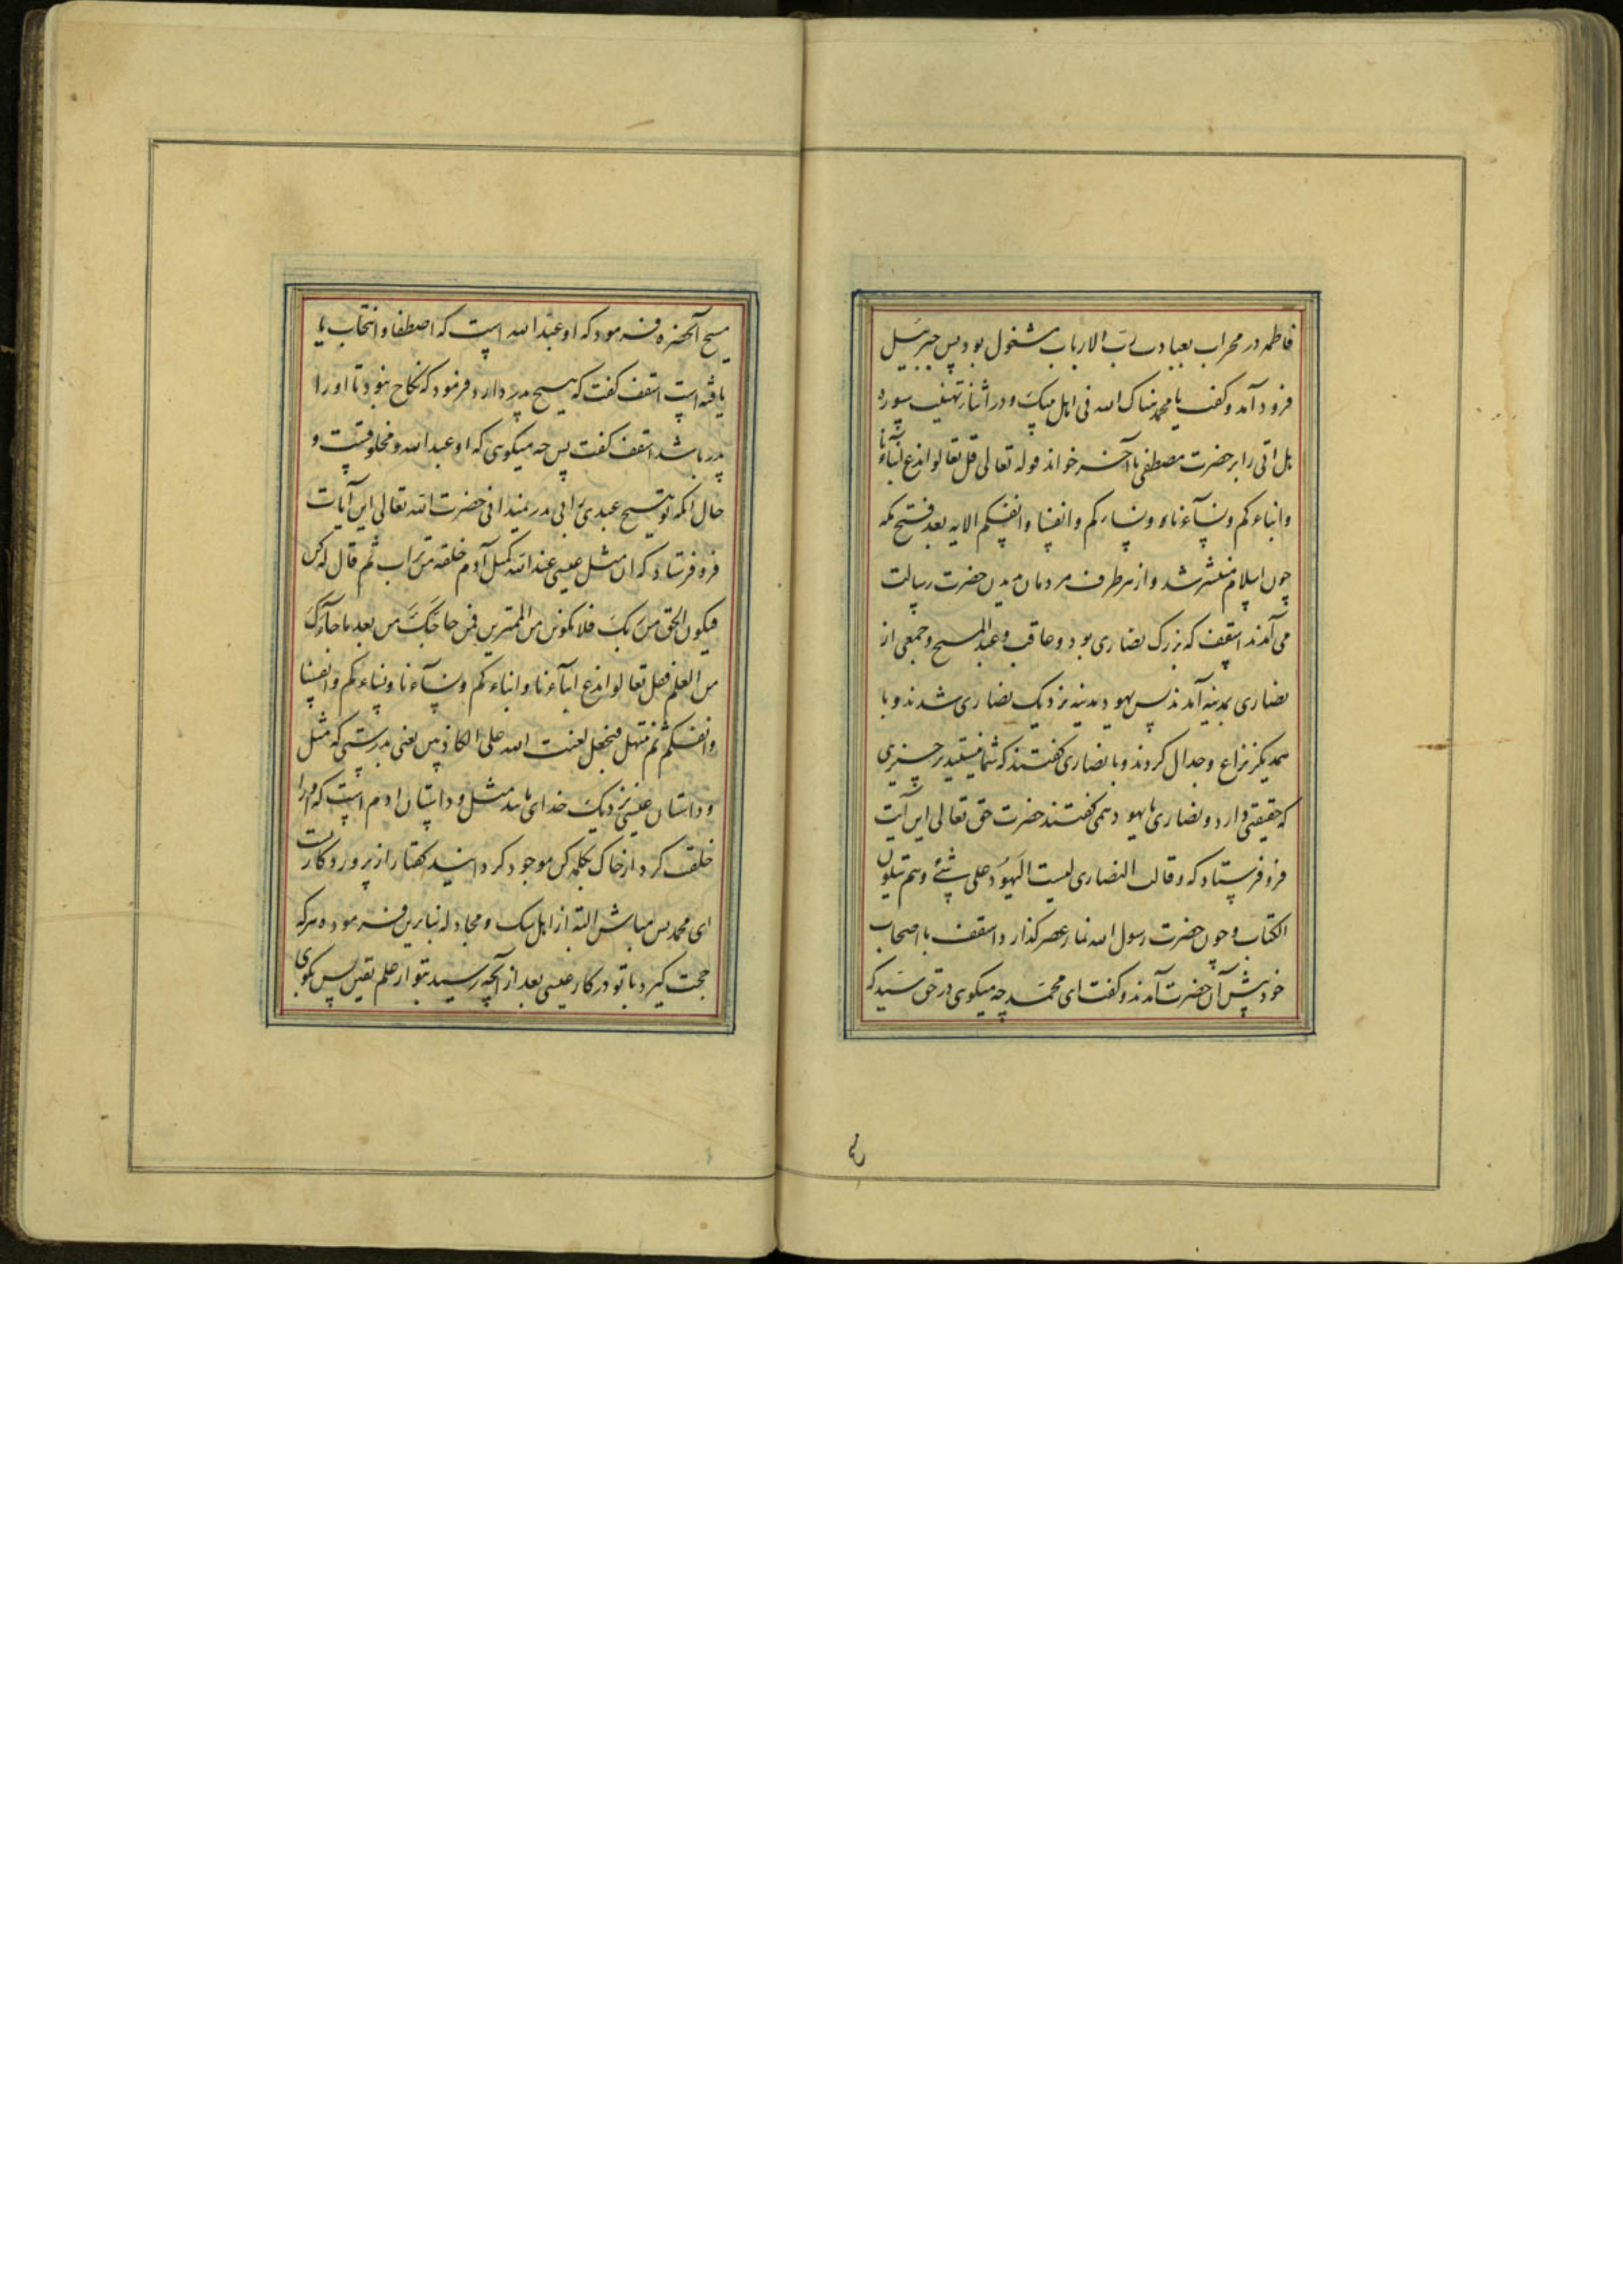 فاطمه در محراب بعبادت رب الارباب مشغول بود پس جبرئیل
فرود آمد و کفت یا محمد هناک الله فی اهل بیتک و در اثنا تهنیت سوره
هل اتی را بر حضرت مصطفی تا آخر خواند قوله تعالی قل تعالوا ندع ابنآءنا
وابناءکم ونسآءنا ونساءکم وانفسنا وانفسکم الایه بعد فتح مکه
چون اسلام منتشر شد و از هر طرف مردمان بدین حضرت رسالت
می آمدند اسقف که بزرک نصاری بود و عاقب و عبد المسیح و جمعی از
نصاری بمدینه آمدند پس یهود مدینه نزدیک نصاری شدند و با
همدیکر نزاع و جدال کردند و با نصاری کفتند که شما نیستید بر چیزی
که حقیقتی دارد و نصاری با یهود همی کفتند حضرت حق تعالی این آیت
فرو فرستاد که وقالت النصاری لیست الیهود علی شئ وهم یتلون
الکتاب و چون حضرت رسول الله نماز عصر کذارد اسقف با اصحاب
خود پیش آن حضرت آمدند و کفت ای محمد چه میکوی در حق سید که
مسیح آنحضره فرمود که او عبد الله است که اصطفا و انتخاب یا
یافته است اسقف کفت که مسیح پدر دارد فرمود که نکاح نبود تا او را
پدر باشد اسقف کفت پس چه میکوی که او عبد الله و مخلوقست و
حال آنکه تو هیچ عبدی را بی پدر نمیدانی حضرت الله تعالی این آیات
فرو فرستاد که ان مثل عیسی عند الله کمثل آدم خلقه من تراب ثم قال له کن
فیکون الحق من ربک فلا تکونن من الممترین فمن حاجک من بعد ما جآءک
من العلم فقل تعالوا ندع ابنآءنا وابناءکم ونسآءنا ونساءکم وانفسنا
وانفسکم ثم نبتهل فنجعل لعنت الله علی الکاذبین یعنی بدرستی که مثل
و داستان عیسی نزدیک خدای مانند مثل و داستان ادم است که او را
خلقت کرد از خاک بکلمه کن موجود کردانید کفتار از پروردکارت
ای محمد پس مباش البته از اهل شک و مجادله بنابرین فرموده هر که
حجت کیرد با تو در کار عیسی بعد از آنچه رسید بتو از علم یقین پس بکوی